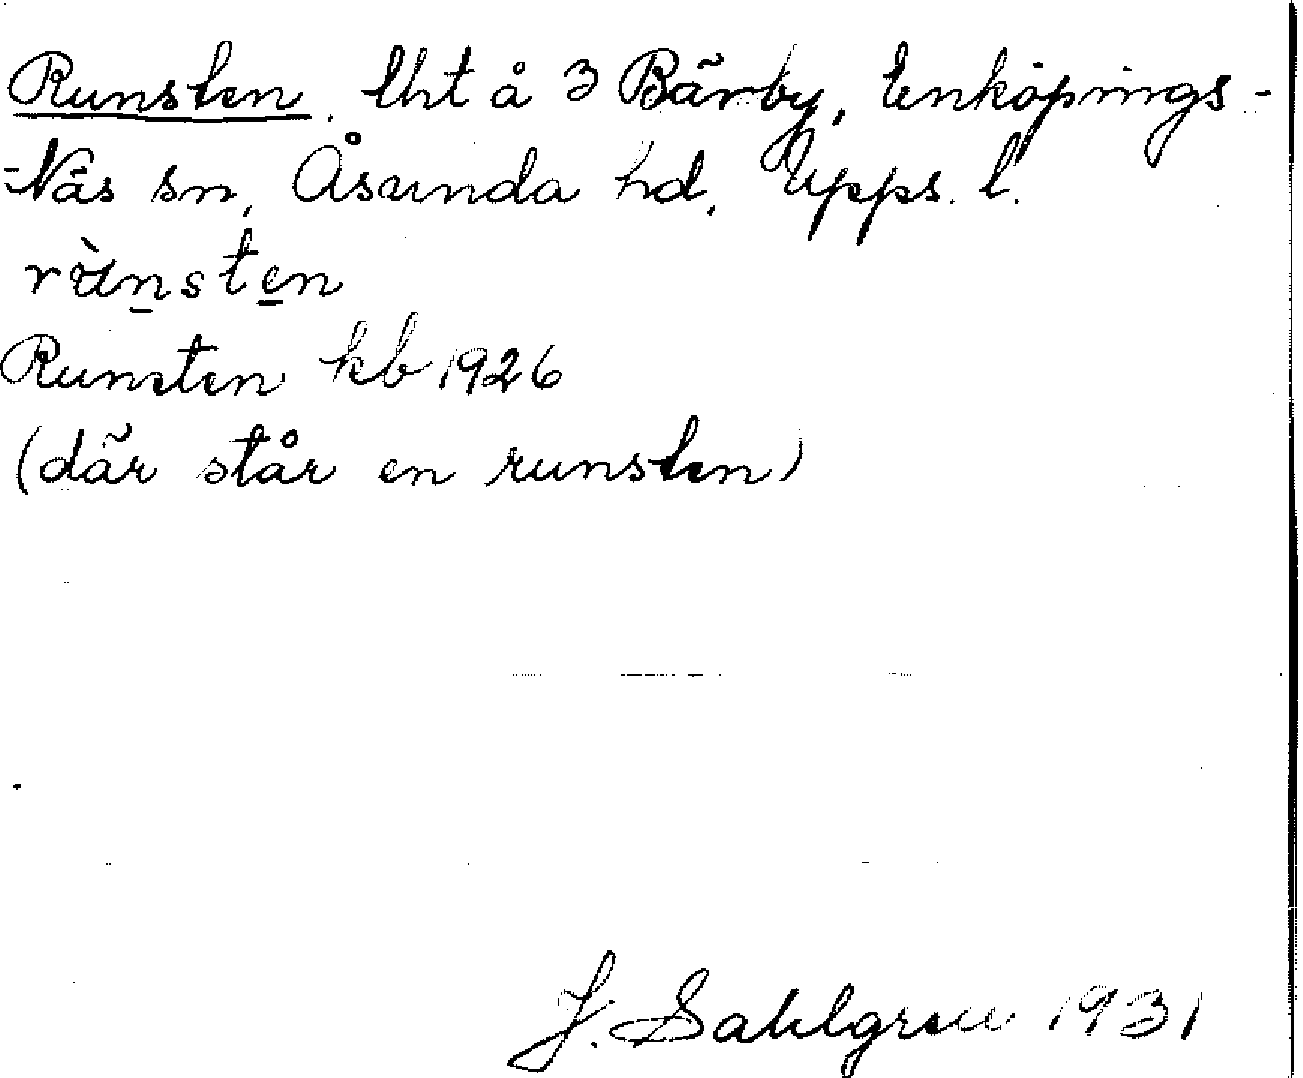 Runsten, lht å 3 Bärby, Enköpings-
-Näs sn, Åsunda hd, Upps. l.
rùnsten
Runsten kb 1926
(där står en runsten)
J. Sahlgren 1931